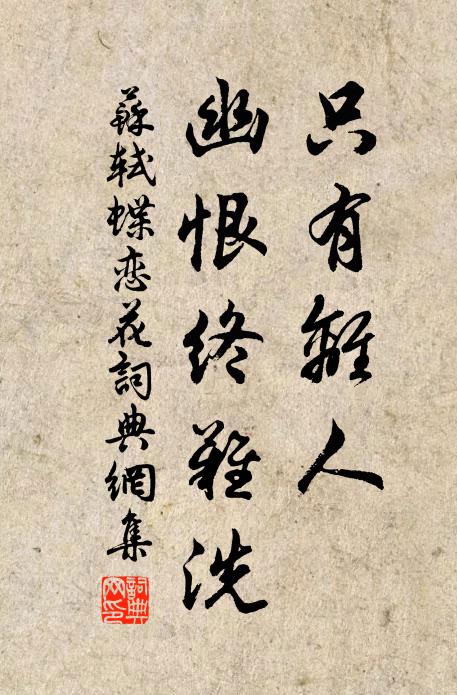 只有離人
幽恨終難洗
蘇軾蝶戀花詞典網集
詞典網印